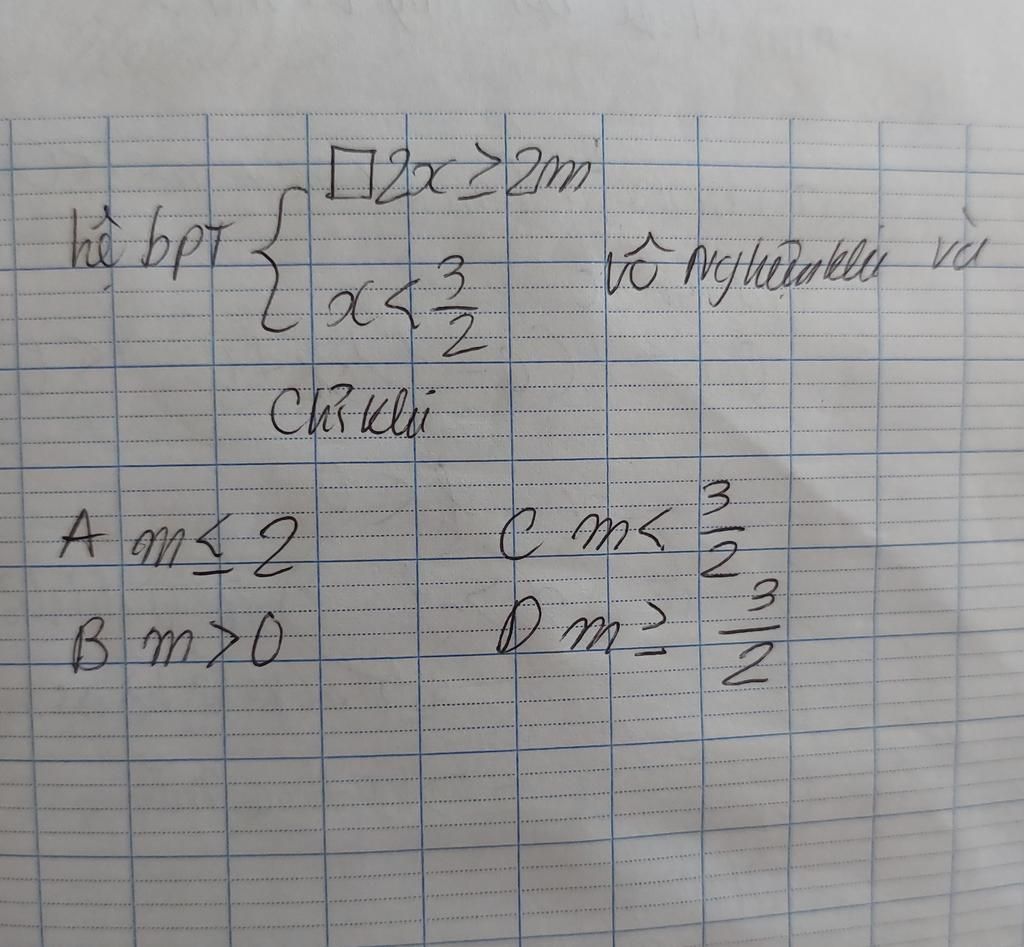 hệ bpT { □ 2x ≥ 2m
x < 3/2 vô nghiệm khi và
Chỉ khi
A m ≤ 2 C m < 3/2
B m > 0 D m ≥ 3/2